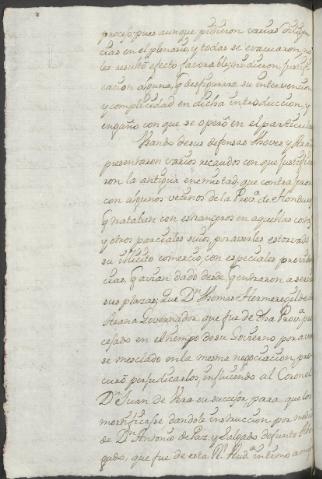 proceso, pues aunque pidieron varias diligen
cias en el plenario y todas se evacuaron, no
les resultó efecto favorable, ni dieron justifi
cacion alguna, q desfigurara su intervencion
y complicidad en dicha introduccion, y
engaño con que se operó en el particular
Usando de sus defensas
presentaron varios recaudos con que justifica
ron la antigua enemistad, que contra
con algunos vecinos de la Prova de Hondus
q trataban con estrangeros en aquellas costas,
y otros parciales suios, por averles estorvado
su ilicito comercio, con especiales providen
cias, q avian dado desde q entraron a servir
sus plazas; que Dn Thomas Hermenegildo de
Arana Governador, que fue de dha Prova
cesado en el tiempo de su Govierno por aver
se mesclado en la mesma negociacion, pro
curó perjudicarlos, influiendo al Coronel
Dn Juan de Vera su succesor, para que los
mortificase dandole instruccion, por medio
de Dn Antonio de Paz, y Salgado defunto Abo
gado, que fue de esta Rl Audª intimo amigo